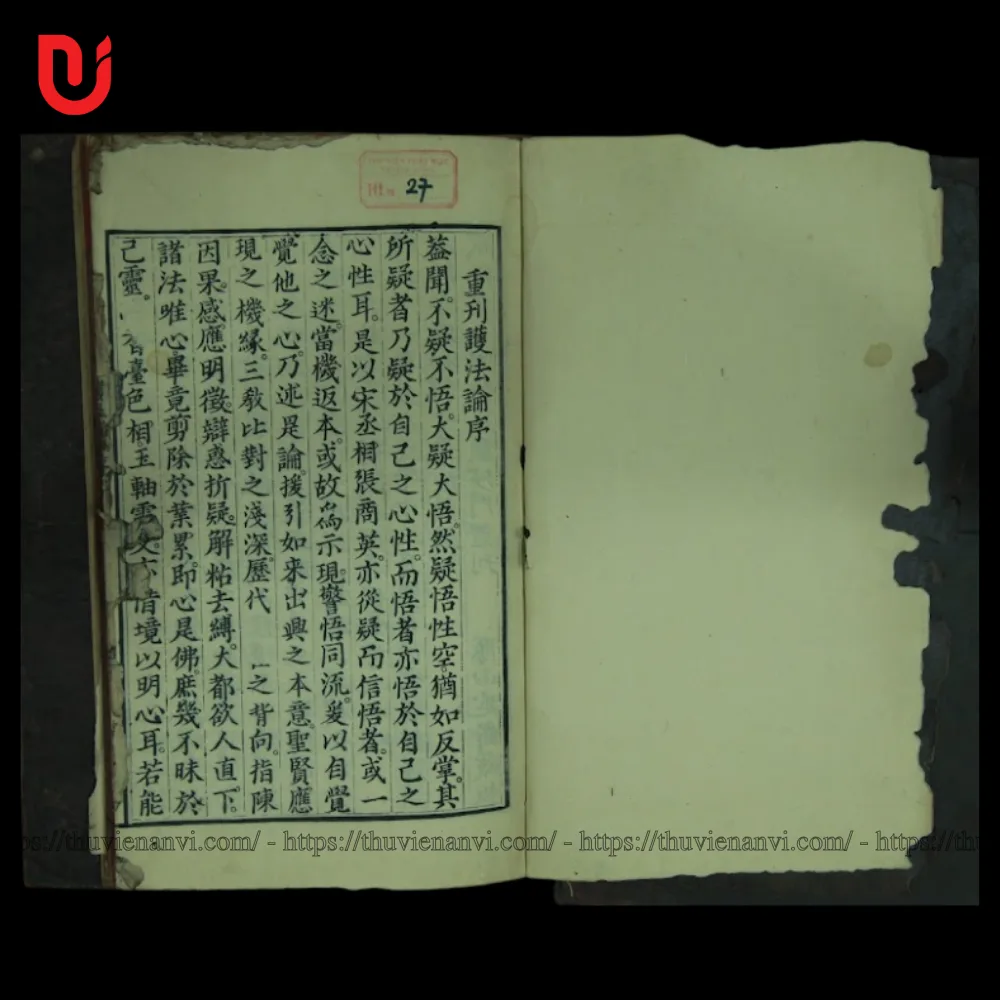 重刋護法論序
葢聞。不疑不悟。大疑大悟。然疑悟性空。猶如反掌。其
所疑者乃疑於自己之心性。而悟者亦悟於自己之
心性耳。是以宋丞相張商英。亦從疑而信悟者。或一
念之迷。當機返本。或故示現。警悟同流。爰以自覺
覺他之心。乃述是論。援引如來出興之本意。聖賢應
現之機緣。三敎比對之淺深。歷代之背向。指陳
因果。感應明徵。辯惑折疑。解粘去縛。大都欲人直下。
諸法唯心畢竟剪除於業累。即心是佛。庶幾不昧於
己靈。臺色相。玉軸雲情境以明心耳。若能
27
https://thuvienanvi.com/ - https://thuvienanvi.com/ - https://thuvienanvi.com/ - https://thuvienanvi.com/